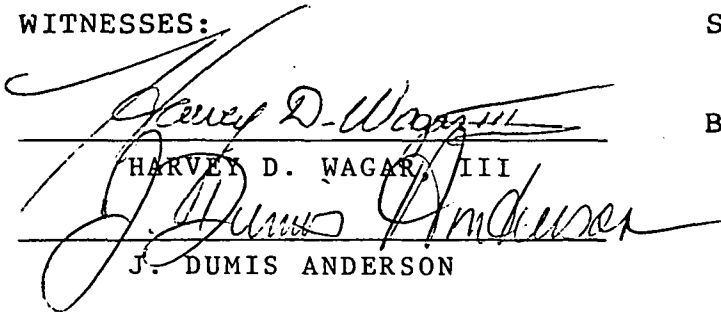 WITNESSES: S
Harvey D. Wagar III B
HARVEY D. WAGAR, III
J. Dumis Anderson
J. DUMIS ANDERSON